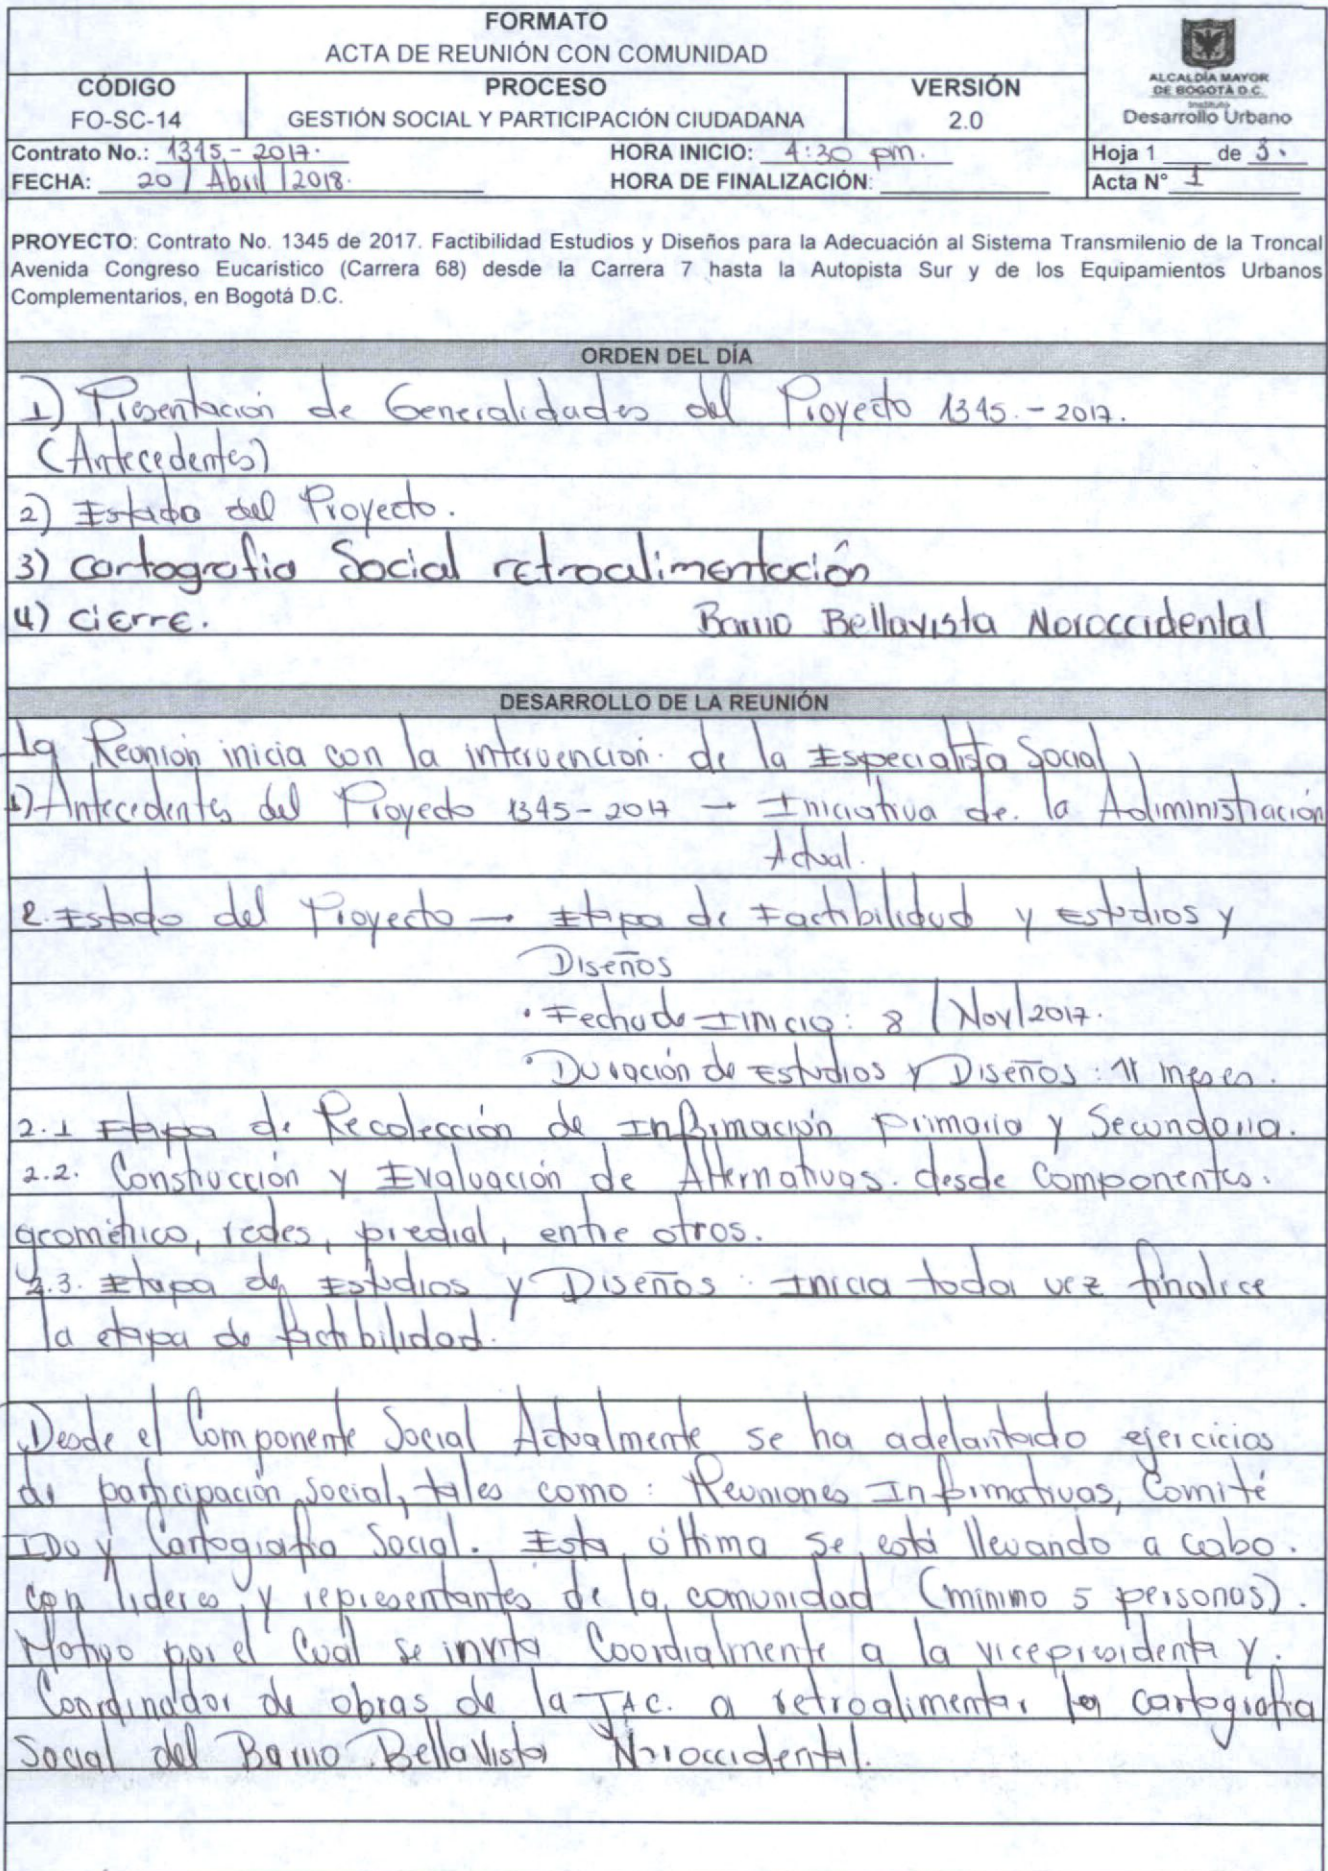 FORMATO
ACTA DE REUNIÓN CON COMUNIDAD
CÓDIGO
FO-SC-14
PROCESO
GESTIÓN SOCIAL Y PARTICIPACIÓN CIUDADANA
VERSIÓN
2.0
ALCALDÍA MAYOR
DE BOGOTÁ D.C.
Instituto
Desarrollo Urbano
Contrato No.: 1345 - 2017.
HORA INICIO: 4:30 pm.
Hoja 1 de 3.
FECHA: 20 / Abril / 2018.
HORA DE FINALIZACIÓN:
Acta N° 1
PROYECTO: Contrato No. 1345 de 2017. Factibilidad Estudios y Diseños para la Adecuación al Sistema Transmilenio de la Troncal
Avenida Congreso Eucarístico (Carrera 68) desde la Carrera 7 hasta la Autopista Sur y de los Equipamientos Urbanos
Complementarios, en Bogotá D.C.
ORDEN DEL DÍA
1) Presentación de Generalidades del Proyecto 1345.-2017.
(Antecedentes)
2) Estado del Proyecto.
3) Cartografia Social retroalimentación
4) Cierre. Barrio Bellavista Noroccidental
DESARROLLO DE LA REUNIÓN
La Reunión inicia con la intervención de la Especialista Social
1) Antecedentes del Proyecto 1345-2017 → Iniciativa de la Adiministración
Actual.
2. Estado del Proyecto → Etapa de Factibilidad y Estudios y
Diseños
• Fecha de Inicio: 8 / Nov/2017.
• Duración de Estudios y Diseños: 11 meses.
2.1 Etapa de Recolección de Información Primaria y Secundaria.
2.2. Construcción y Evaluación de Alternativas. desde Componentes.
geométrico, redes, predial, entre otros.
2.3. Etapa de Estudios y Diseños: Inicia toda vez finalice
la etapa de factibilidad.
Desde el Componente Social Actualmente se ha adelantado ejercicios
de participación social, tales como: Reuniones Informativas, Comité
IDU y Cartografia Social. Esta última se está llevando a cabo.
con lideres y representantes de la comunidad (minimo 5 personas).
Motivo por el Cual se invita Coordialmente a la vicepresidenta y.
Coordinador de obras de la JAC. a retroalimentar la cartografia
Social del Barrio Bellavista Noroccidental.